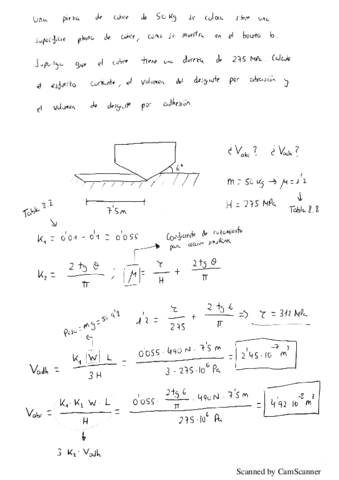 Una pieza de cobre de 50 Kg se coloca sobre una
superficie plana de cobre, como se muestra en el boceto b.
Suponga que el cobre tiene una dureza de 275 MPa. Calcule
el esfuerzo cortante, el volumen del desgaste por abrasión y
el volumen de desgaste por adhesión.
6°
7'5m
¿Vabr? ¿Vadh?
m = 50 Kg → μ = 1'2
H = 275 MPa
Tabla 8.8
Tabla 8.8
K₁ = 0'01 - 0'1 = 0'055
Coeficiente de rozamiento
por acción
K₂ = 2 tg θ / π ; μ = τ / H + 2 tg θ / π
1'2 = τ / 275 + 2 tg 6 / π ⇒ τ = 312 MPa
Peso = mg = 50·9'8
Vadh = K₁ W L / 3 H = 0'055 · 490 N · 7'5 m / 3 · 275·10⁶ Pa = 2'45·10⁻⁷ m³
Vabr = K₁ · K₂ W · L / H = 0'055 · 2 tg 6 / π · 490 N · 7'5 m / 275·10⁶ Pa = 4'92·10⁻⁸ m³
3 K₂ · Vadh
Scanned by CamScanner